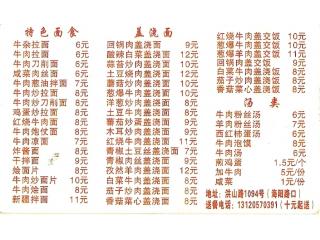 特色面食
牛杂拉面 6元
牛肉拉面 6元
牛肉刀削面 6元
咸菜肉丝面 6元
牛肉葱油拌面 7元
牛肉炒拉面 8元
牛肉炒刀削面 8元
鸡蛋炒拉面 6元
红烧牛肉面 8元
牛肉炮仗面 8元
牛肉凉面 7元
炸酱面 8元
干拌面 9元
牛肉拌面 9元
牛肉炒面片 10元
牛肉烩面 8元
新疆拌面 11元
盖浇面
回锅肉盖浇面 9元
酸辣白菜盖浇面 12元
土豆烧肉盖浇面 12元
蒜苔炒肉盖浇面 12元
蘑菇炒肉盖浇面 10元
葱爆牛肉盖浇面 10元
洋葱炒肉盖浇面 8元
土豆丝炒肉盖浇面 8元
葱爆羊肉盖浇面 9元
木耳炒肉盖浇面 9元
红烧牛肉盖浇面 9元
青椒土豆盖浇面 7元
青椒肉丝盖浇面 11元
孜然羊肉盖浇面 12元
白菜牛肉盖浇面 7元
茄子炒肉盖浇面 8元
香菇菜心盖浇面 7元
红烧牛肉盖交饭 10元
葱爆牛肉盖交饭 10元
葱爆羊肉盖交饭 11元
回锅肉盖交饭 9元
白菜牛肉盖交饭 8元
茄子炒肉盖交饭 8元
香菇菜心盖交饭 8元
汤类
牛肉粉丝汤 6元
羊肉粉丝汤 7元
西红柿蛋汤 6元
牛肉泡馍 8元
牛肉汤 6元
煎鸡蛋 1.5元/个
加牛肉 5元/份
咸菜 1元/份
地址:洪山路1094号(海阳路口)
送餐电话:13120570391(十元起送)